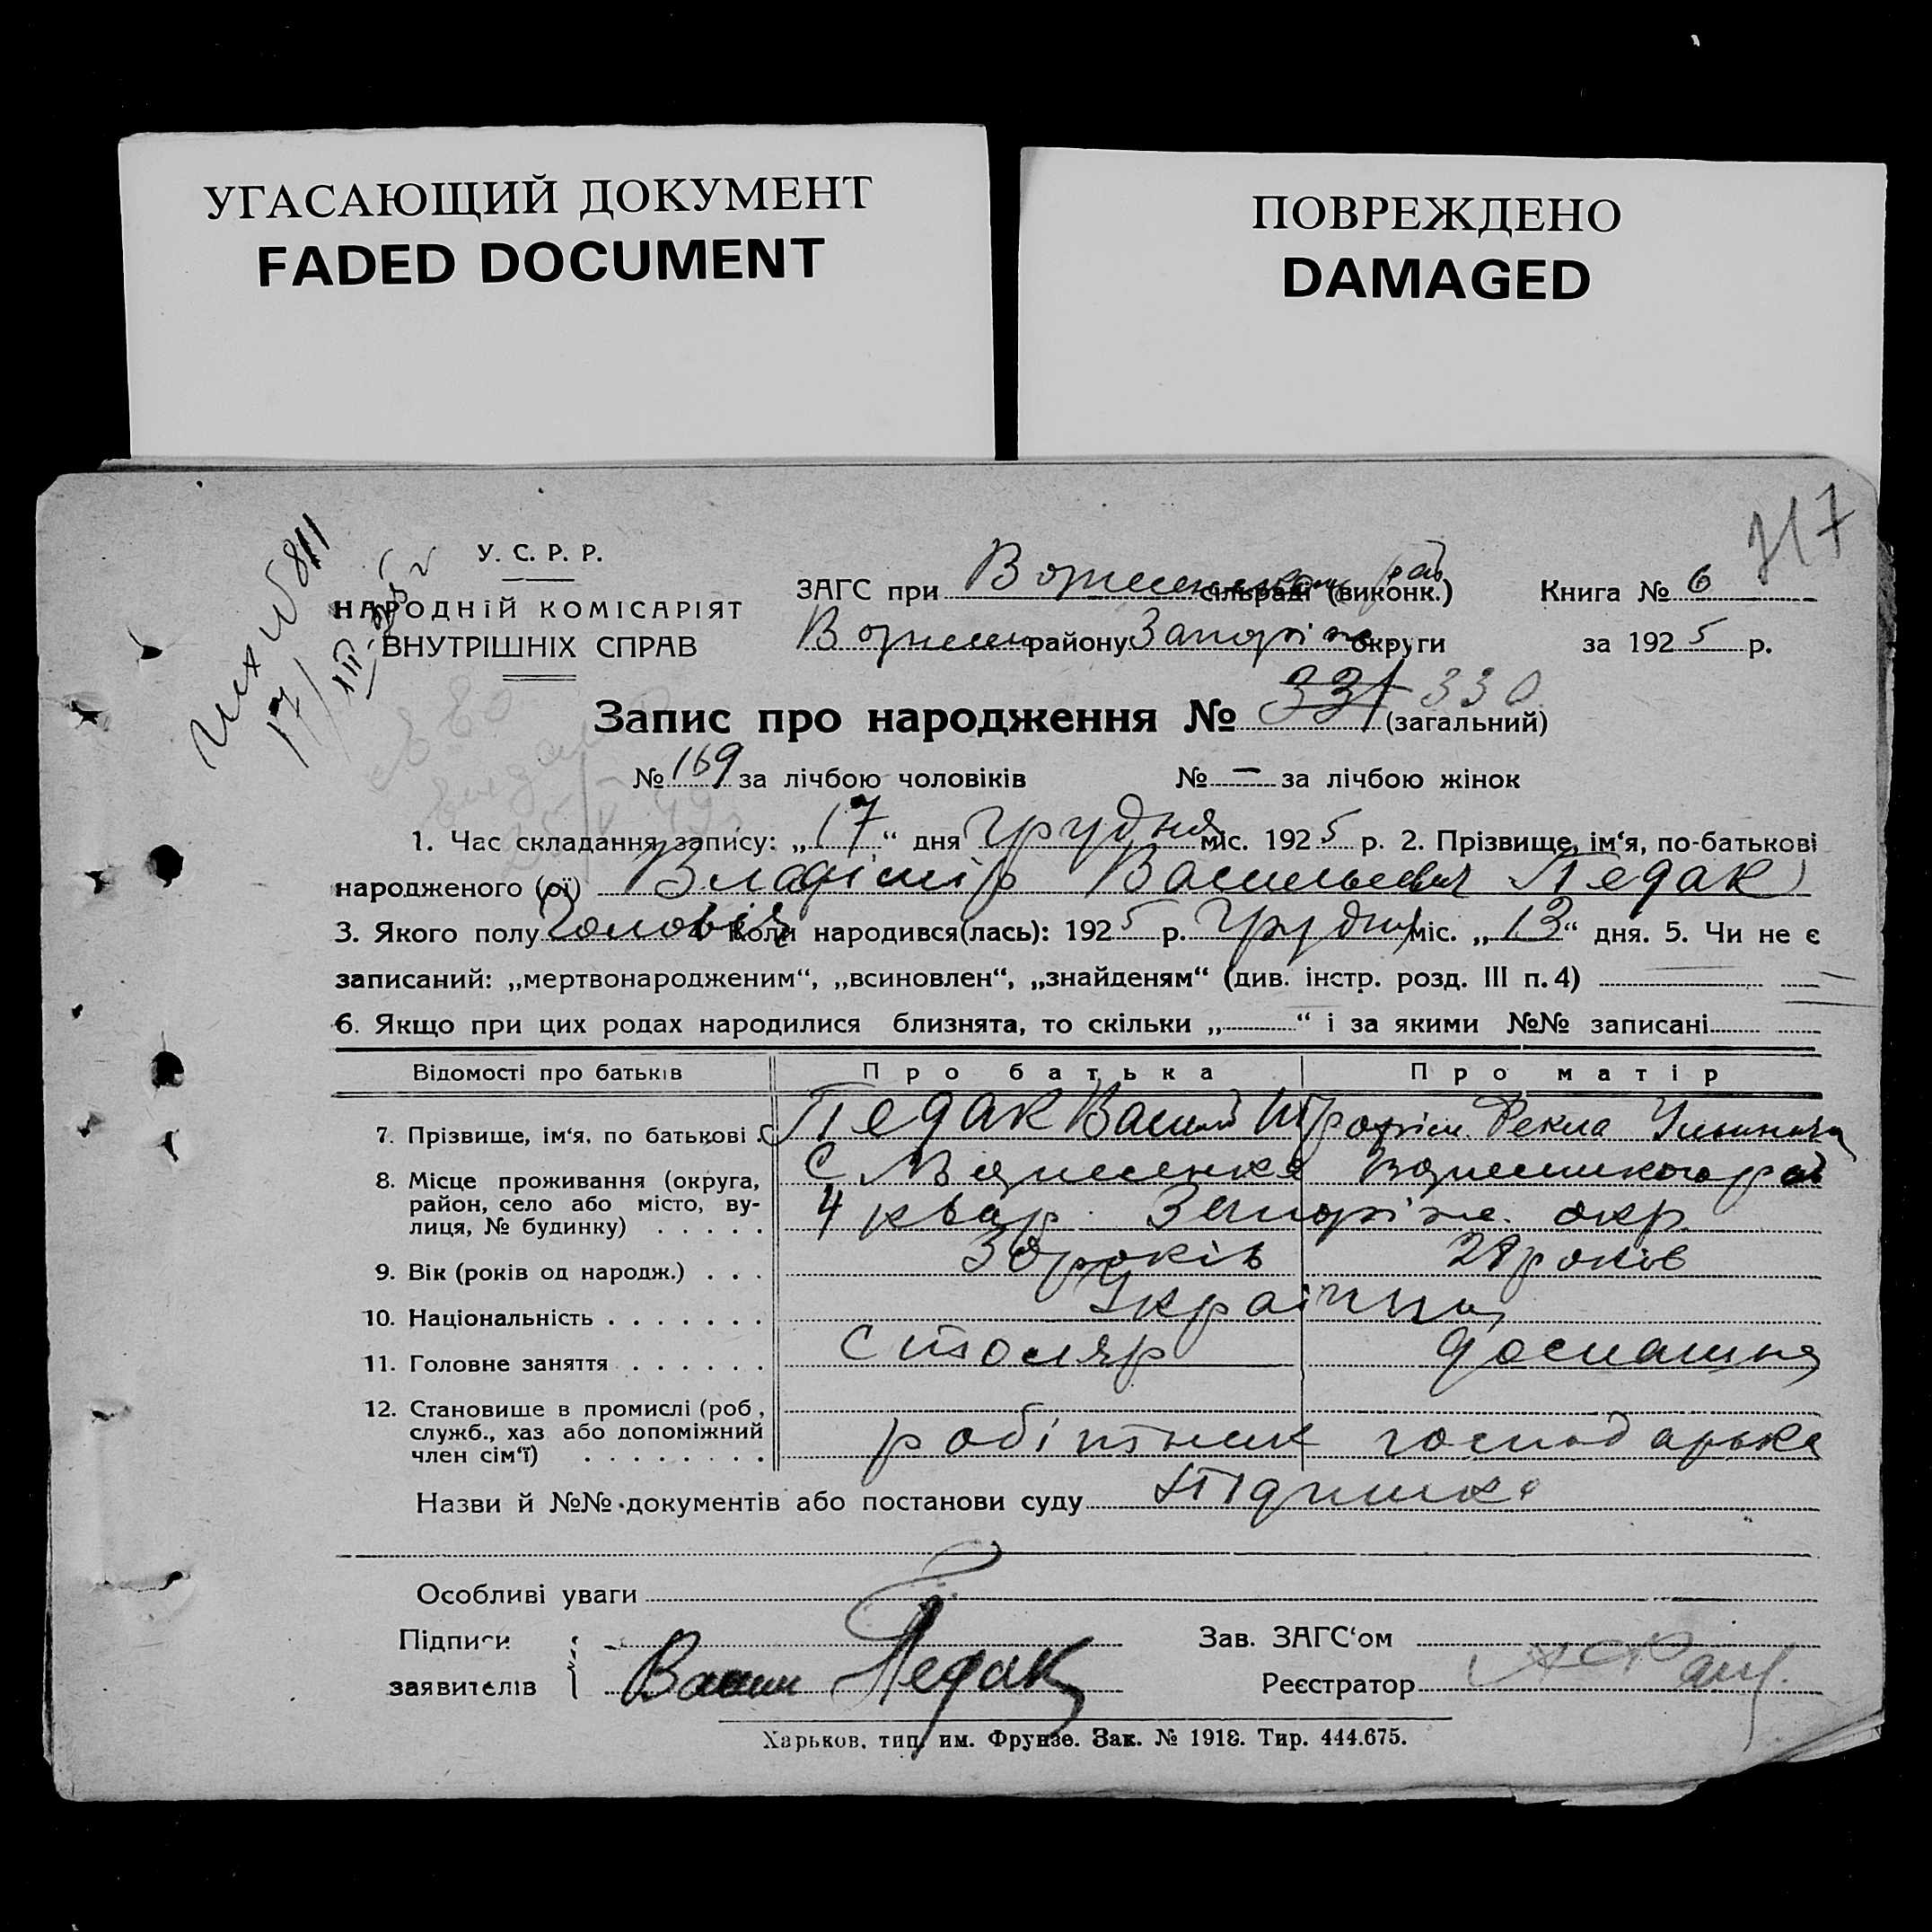 УГАСАЮЩИЙ ДОКУМЕНТ
FADED DOCUMENT
ПОВРЕЖДЕНО
DAMAGED
317
У. С. Р. Р.
НАРОДНІЙ КОМІСАРІЯТ
ВНУТРІШНІХ СПРАВ
ЗАГС при сільраді (виконк.)
Книга № 6
району Запоріж округи
за 1925 р.
Запис про народження № 331 330 (загальний)
№ 169 за лічбою чоловіків № — за лічбою жінок
1. Час складання запису: „17“ дня Грудня міс. 1925 р. 2. Прізвище, ім‘я, по-батькові
народженого (ої) Владімір Васильевич Педак
3. Якого полу Чоловік Коли народився(лась): 1925 р. Грудня міс. „13“ дня. 5. Чи не є
записаний: „мертвонародженим“, „всиновлен“, „знайденям“ (див. інстр. розд. III п. 4)
6. Якщо при цих родах народилися близнята, то скільки „ “ і за якими №№ записані
Відомості про батьків Про батька Про матір
7. Прізвище, ім‘я, по батькові Педак Василь Фекла
8. Місце проживання (округа,
район, село або місто, ву-
лиця, № будинку) 4 квар. Запоріж. окр
9. Вік (років од народж.) 30 років років
10. Національність Українці
11. Головне заняття Столяр домашня
12. Становище в промислі (роб.,
служб., хаз або допоміжний
член сім‘ї) робітник господарька
Назви й №№ документів або постанови суду Підписка
Особливі уваги
Підписи
заявителів Васил Педак
Зав. ЗАГС‘ом
Реєстратор
Харьков, тип. им. Фрунзе. Зак. № 1918. Тир. 444.675.